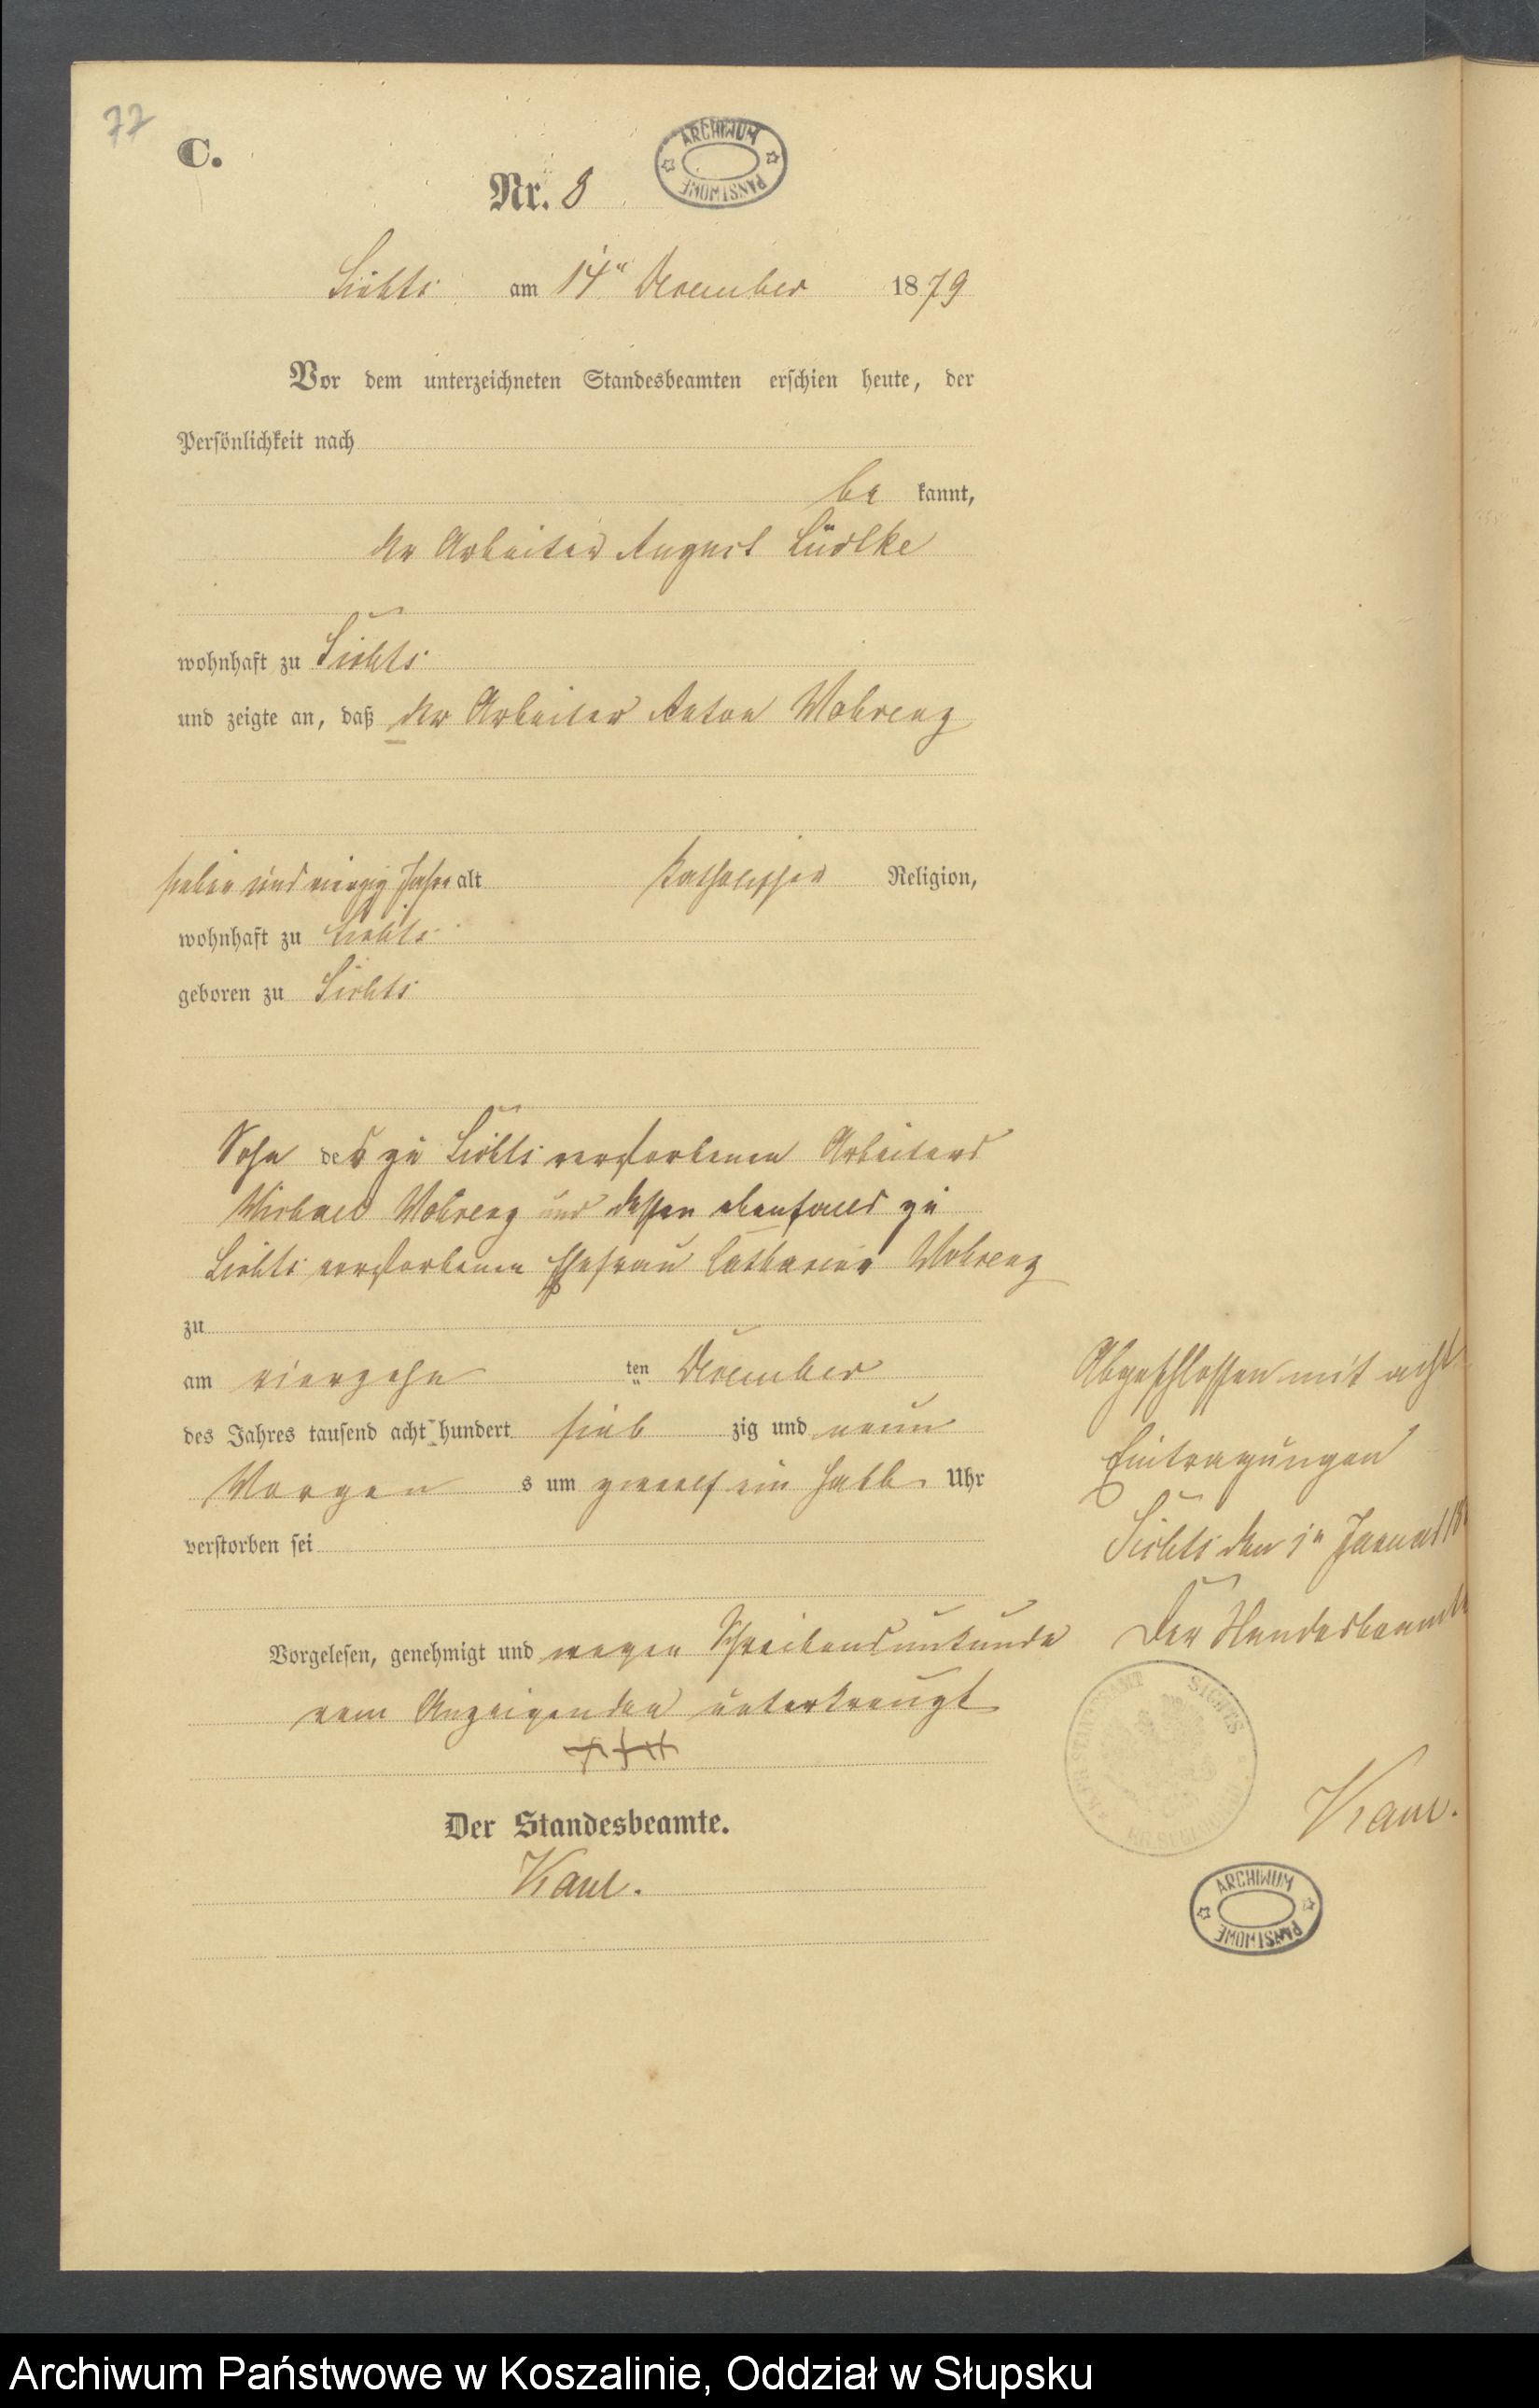 77
C.
ARCHIWUM PAŃSTWOWE
Nr. 8
Sichts am 14ten December 1879
Vor dem unterzeichneten Standesbeamten erschien heute, der
Persönlichkeit nach
be kannt,
der Arbeiter August Lüdtke
wohnhaft zu Sichts
und zeigte an, daß der Arbeiter Anton
sieben und vierzig Jahre alt katholischer Religion,
wohnhaft zu Sichts
geboren zu Sichts
Sohn des zu Sichts verstorbenen Arbeiters
Michael und dessen ebenfalls zu
Sichts verstorbenen Ehefrau Catharina
zu
am vierzehn ten December
des Jahres tausend acht hundert sieb zig und neun
Morgen s um zwoelf ein halb Uhr
verstorben sei
Vorgelesen, genehmigt und wegen Schreibensunkunde
vom Anzeigenden unterkreuzt
+++
Der Standesbeamte.
Kaul.
Abgeschlossen mit acht
Eintragungen
Sichts den 1n Januar 18
Der Standesbeamte
SICHTS
Kaul.
ARCHIWUM PAŃSTWOWE
Archiwum Państwowe w Koszalinie, Oddział w Słupsku